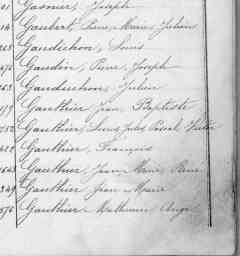 Gasnier, Joseph
Gaubert, Pierre Marie Julien
Gaudichon, Louis
Gaudin, Pierre, Joseph
Gauduchon, Julien
Gauthier Jean Baptiste
Gauthier, Louis Jules Pascal Victor
Gauthier, François
Gauthier, Jean Marie Pierre
Gauthier Jean Marie
Gauthier Mathurin Ange